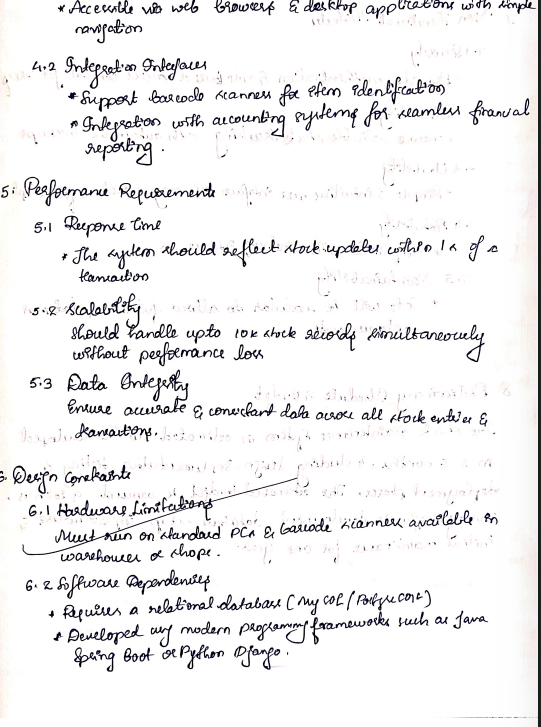 * Accessible via web browsers & desktop applications with simple
navigation
4.2 Integration Interfaces
* Support barcode scanners for item identification.
* Integration with accounting systems for seamless financial
reporting.
5. Performance Requirements
5.1 Response time
* The system should reflect stock updates within 1s of a
transaction
5.2 Scalability
Should handle upto 10k stock records simultaneously
without performance loss
5.3 Data Integrity
Ensure accurate & consistant data across all stock entries &
transactions.
6. Design Constraints
6.1 Hardware Limitations
Must run on standard PCs & barcode scanners available in
warehouses or shops.
6.2 Software Dependencies
* Requires a relational database (MySQL/PostgreSQL)
* Developed using modern programming frameworks such as Java
Spring Boot or Python Django.